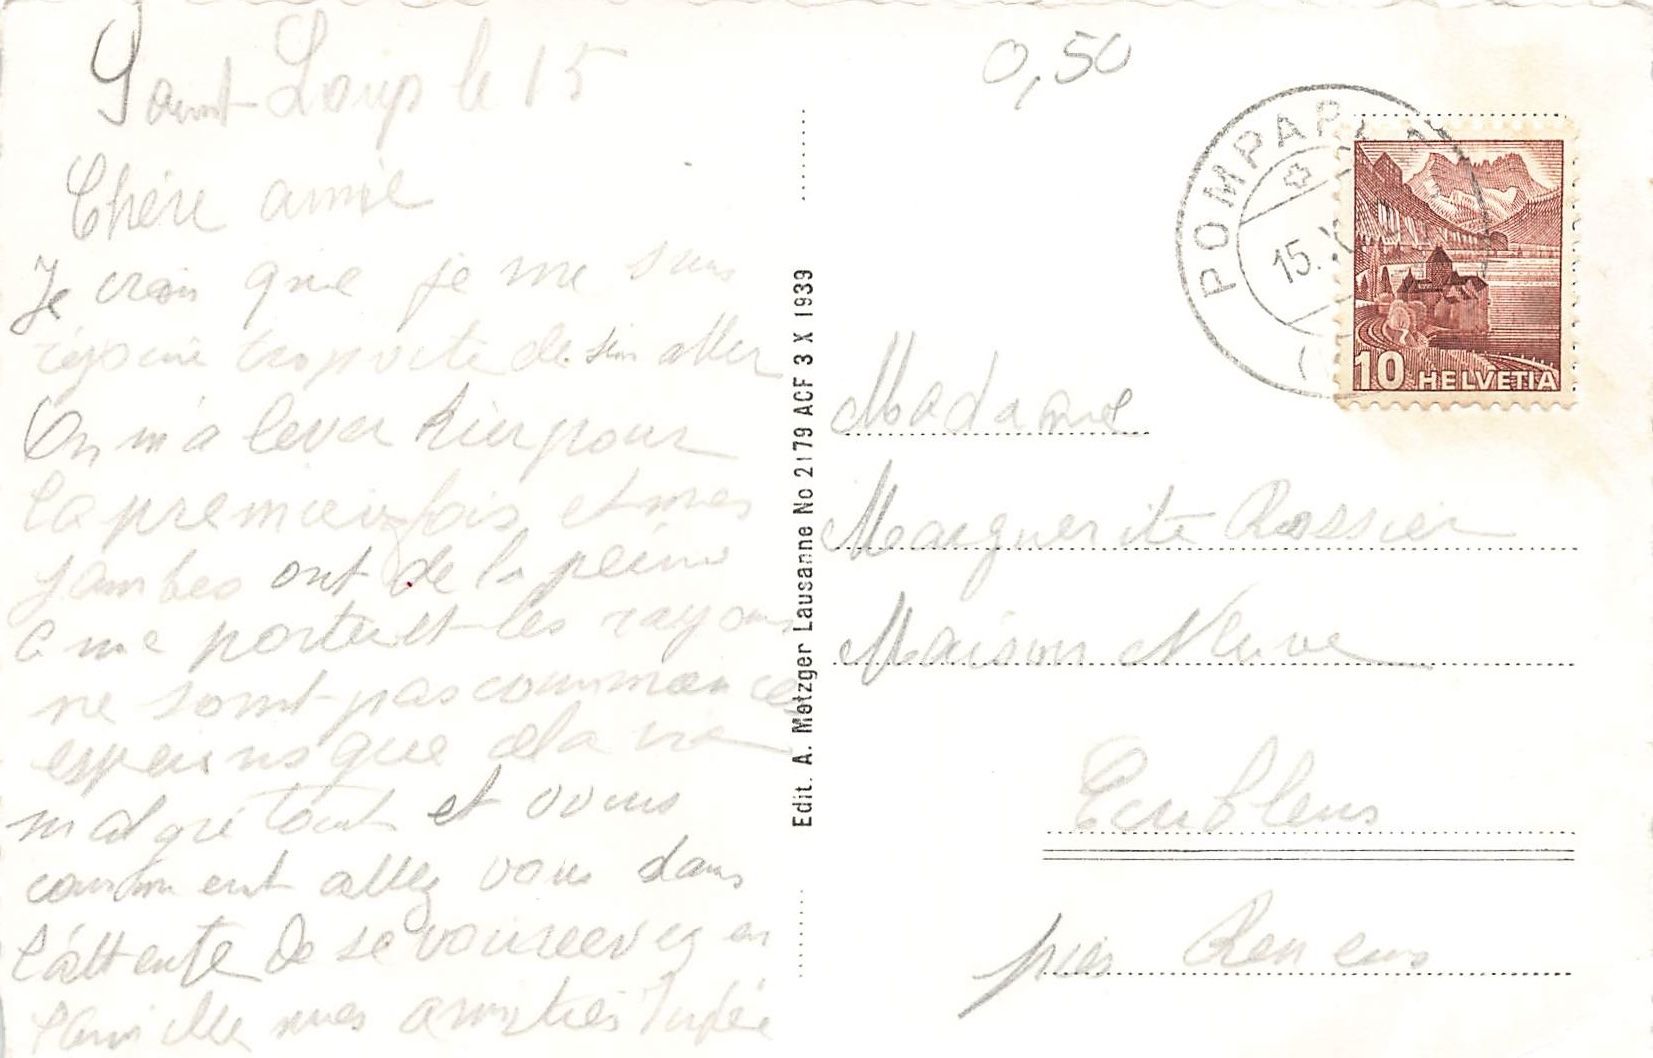 0,50
Saint-Loup le 15
Chère amie
Je crois que je me suis
réjouie trop vite de
On m'a lever hier pour
la premier fois et mes
jambes ont de la peine
a me porter et les rayons
ne sont pas commencés
esperons que cela ira
malgré tout et vous
comment allez vous dans
l'attente de se en
famille mes amitiés
Edit. A. Metzger Lausanne No 2179 ACF 3 X 1939
POMPAP
15. X
10 HELVETIA
Madame
Marguerite Rossier
Maison Neuve
Ecublens
près Renens